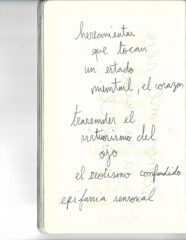 herramientas
que tocan
un estado
mental, el corazon
trascender el
del
ojo
el erotismo confundido
epifania sensorial